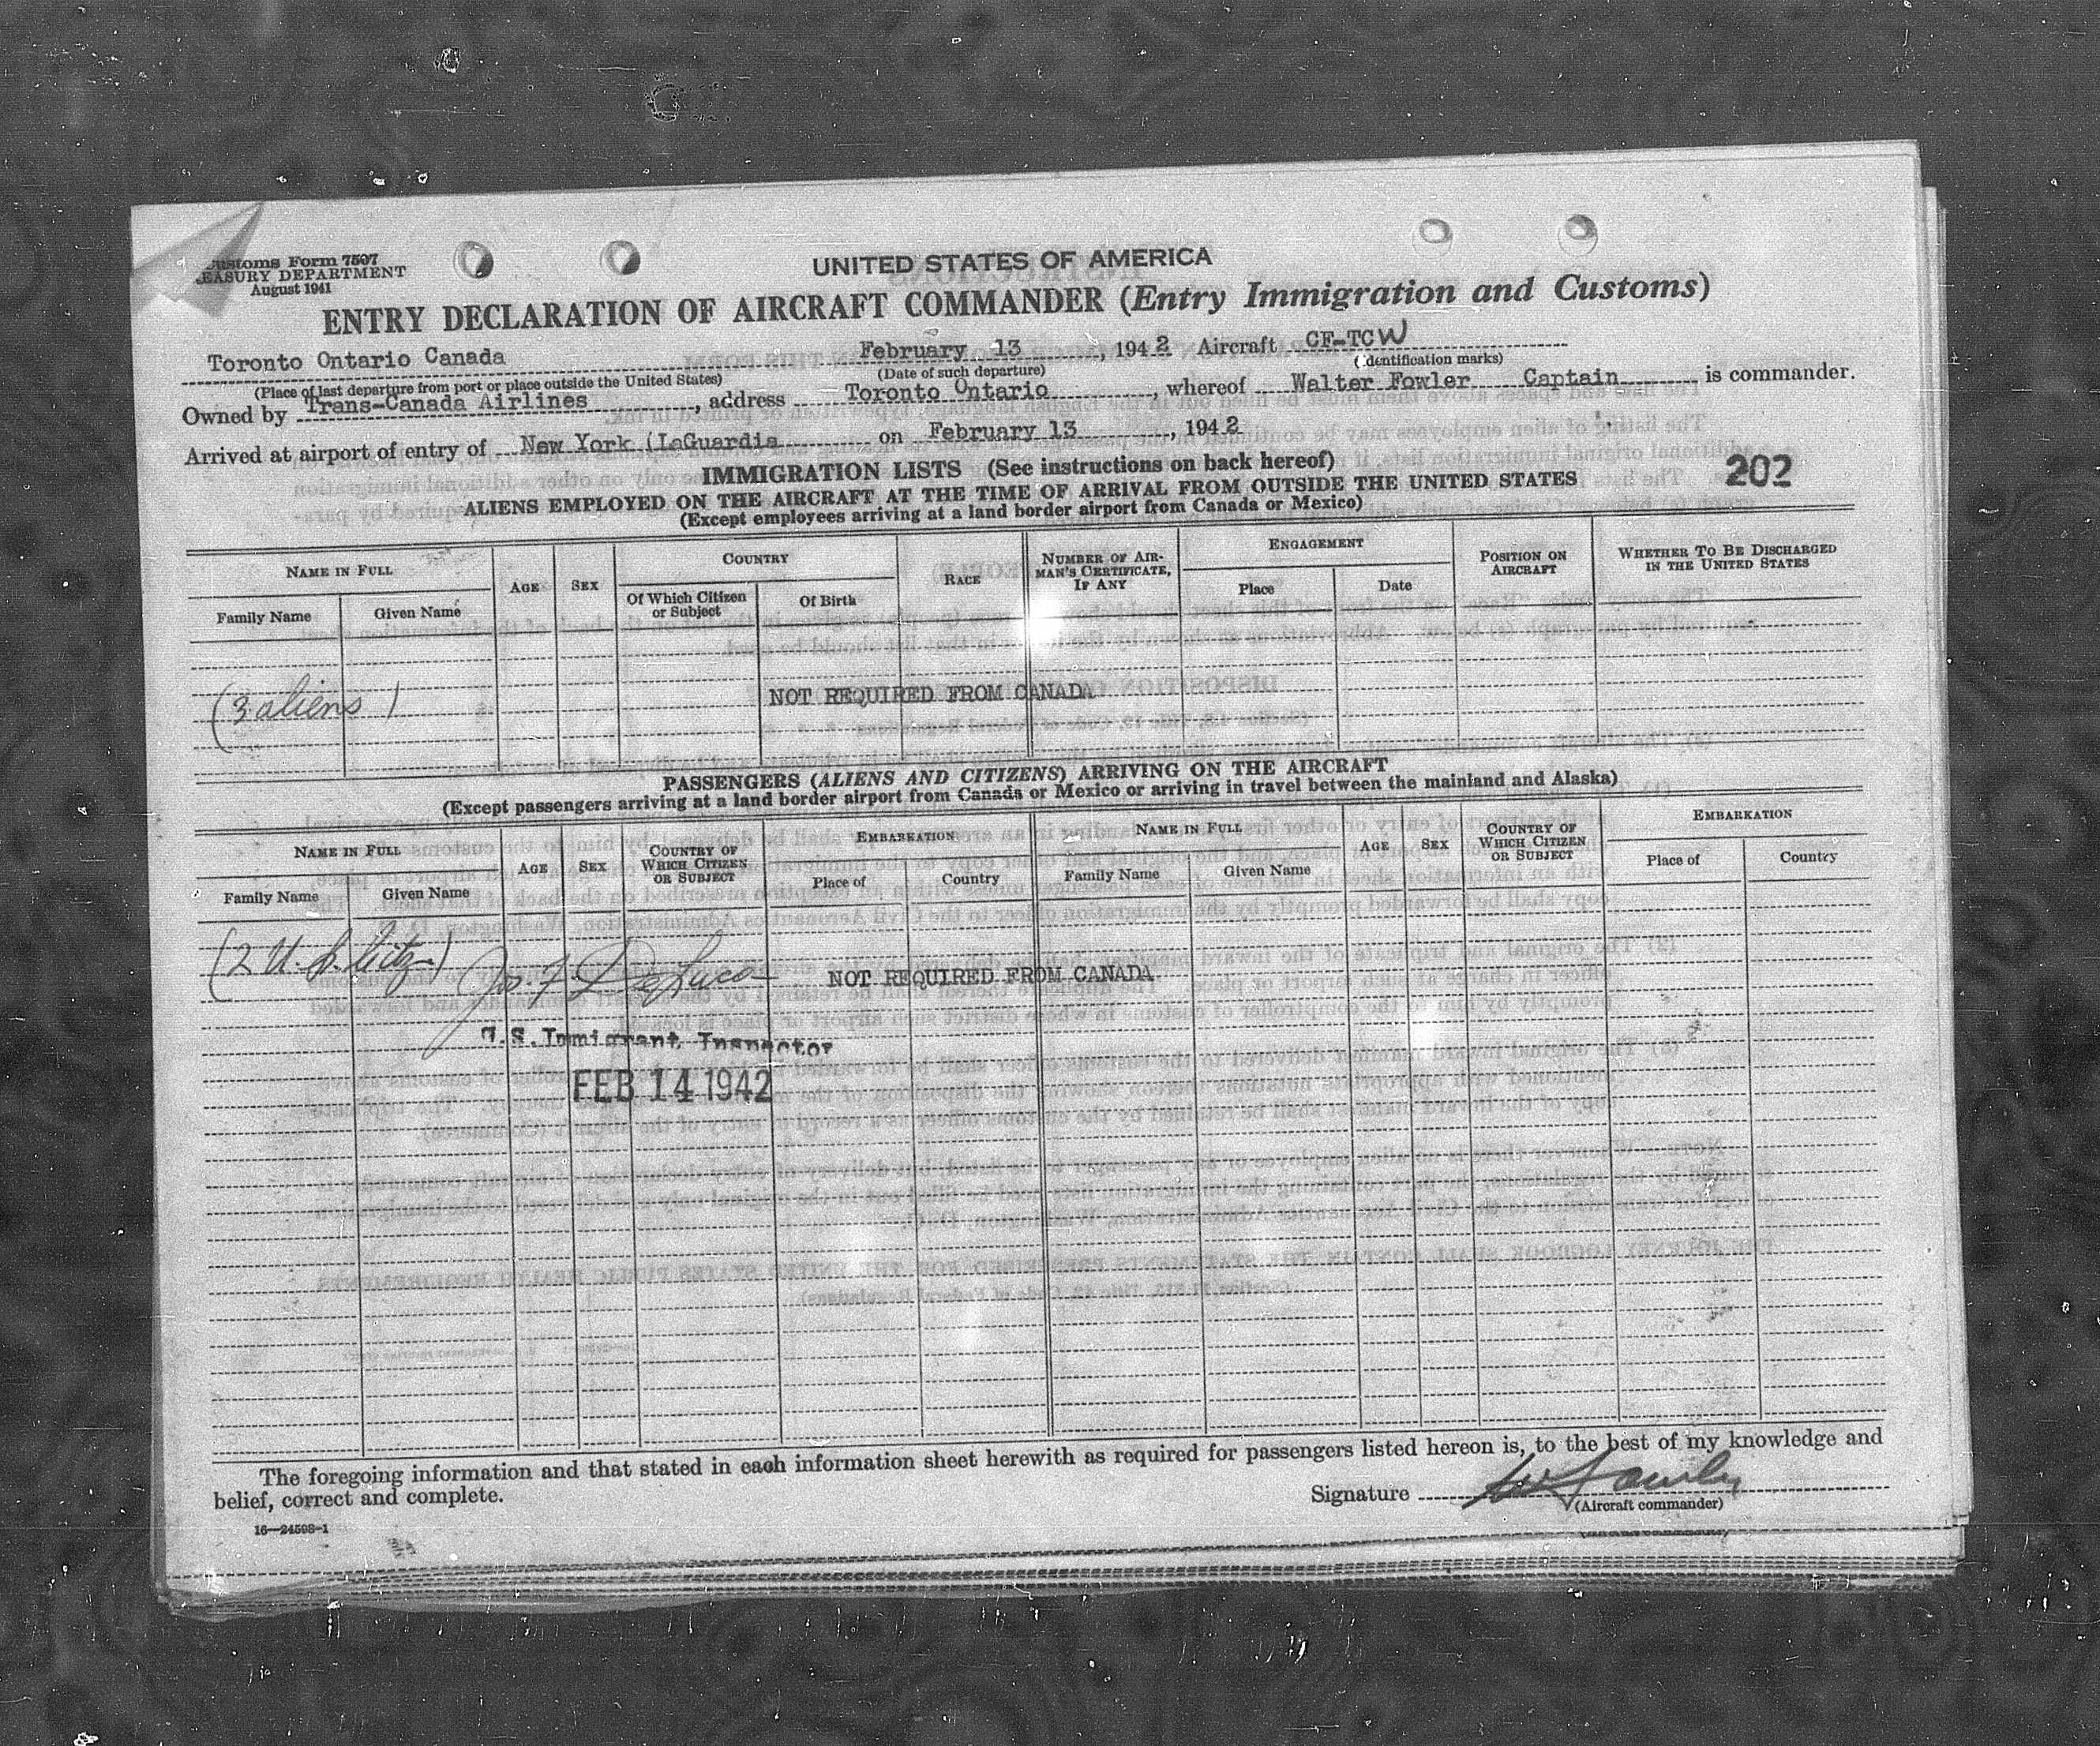 Customs Form 7507
TREASURY DEPARTMENT
August 1941
UNITED STATES OF AMERICA
ENTRY DECLARATION OF AIRCRAFT COMMANDER (Entry Immigration and Customs)
Toronto Ontario Canada February 13, 1942 Aircraft CF-TCW
(Place of last departure from port or place outside the United States) (Date of such departure) (Identification marks)
Owned by Trans-Canada Airlines, address Toronto Ontario, whereof Walter Fowler Captain is commander.
Arrived at airport of entry of New York (LaGuardia on February 13, 1942
IMMIGRATION LISTS (See instructions on back hereof)
202
ALIENS EMPLOYED ON THE AIRCRAFT AT THE TIME OF ARRIVAL FROM OUTSIDE THE UNITED STATES
(Except employees arriving at a land border airport from Canada or Mexico)
NAME IN FULL AGE SEX COUNTRY RACE NUMBER OF AIRMAN'S CERTIFICATE, IF ANY ENGAGEMENT POSITION ON AIRCRAFT WHETHER TO BE DISCHARGED IN THE UNITED STATES
Family Name Given Name Of Which Citizen or Subject Of Birth Place Date
(3 aliens) NOT REQUIRED FROM CANADA
PASSENGERS (ALIENS AND CITIZENS) ARRIVING ON THE AIRCRAFT
(Except passengers arriving at a land border airport from Canada or Mexico or arriving in travel between the mainland and Alaska)
NAME IN FULL AGE SEX COUNTRY OF WHICH CITIZEN OR SUBJECT EMBARKATION NAME IN FULL AGE SEX COUNTRY OF WHICH CITIZEN OR SUBJECT EMBARKATION
Family Name Given Name Place of Country Family Name Given Name Place of Country
(2 U.S. Citz) NOT REQUIRED FROM CANADA
U.S. Immigrant Inspector
FEB 14 1942
The foregoing information and that stated in each information sheet herewith as required for passengers listed hereon is, to the best of my knowledge and
belief, correct and complete.
Signature W Fowler
(Aircraft commander)
16—24598-1